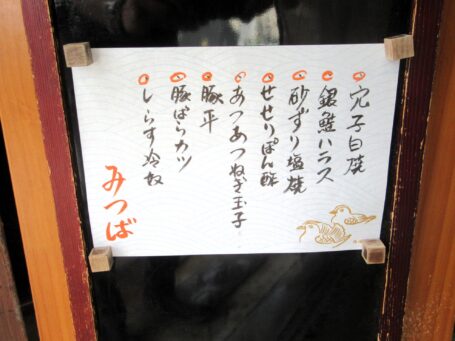 穴子白焼
銀鮭ハラス
砂ずり塩焼
せせりぽん酢
あつあつねぎ玉子
豚平
豚ばらカツ
しらす冷奴
みつば